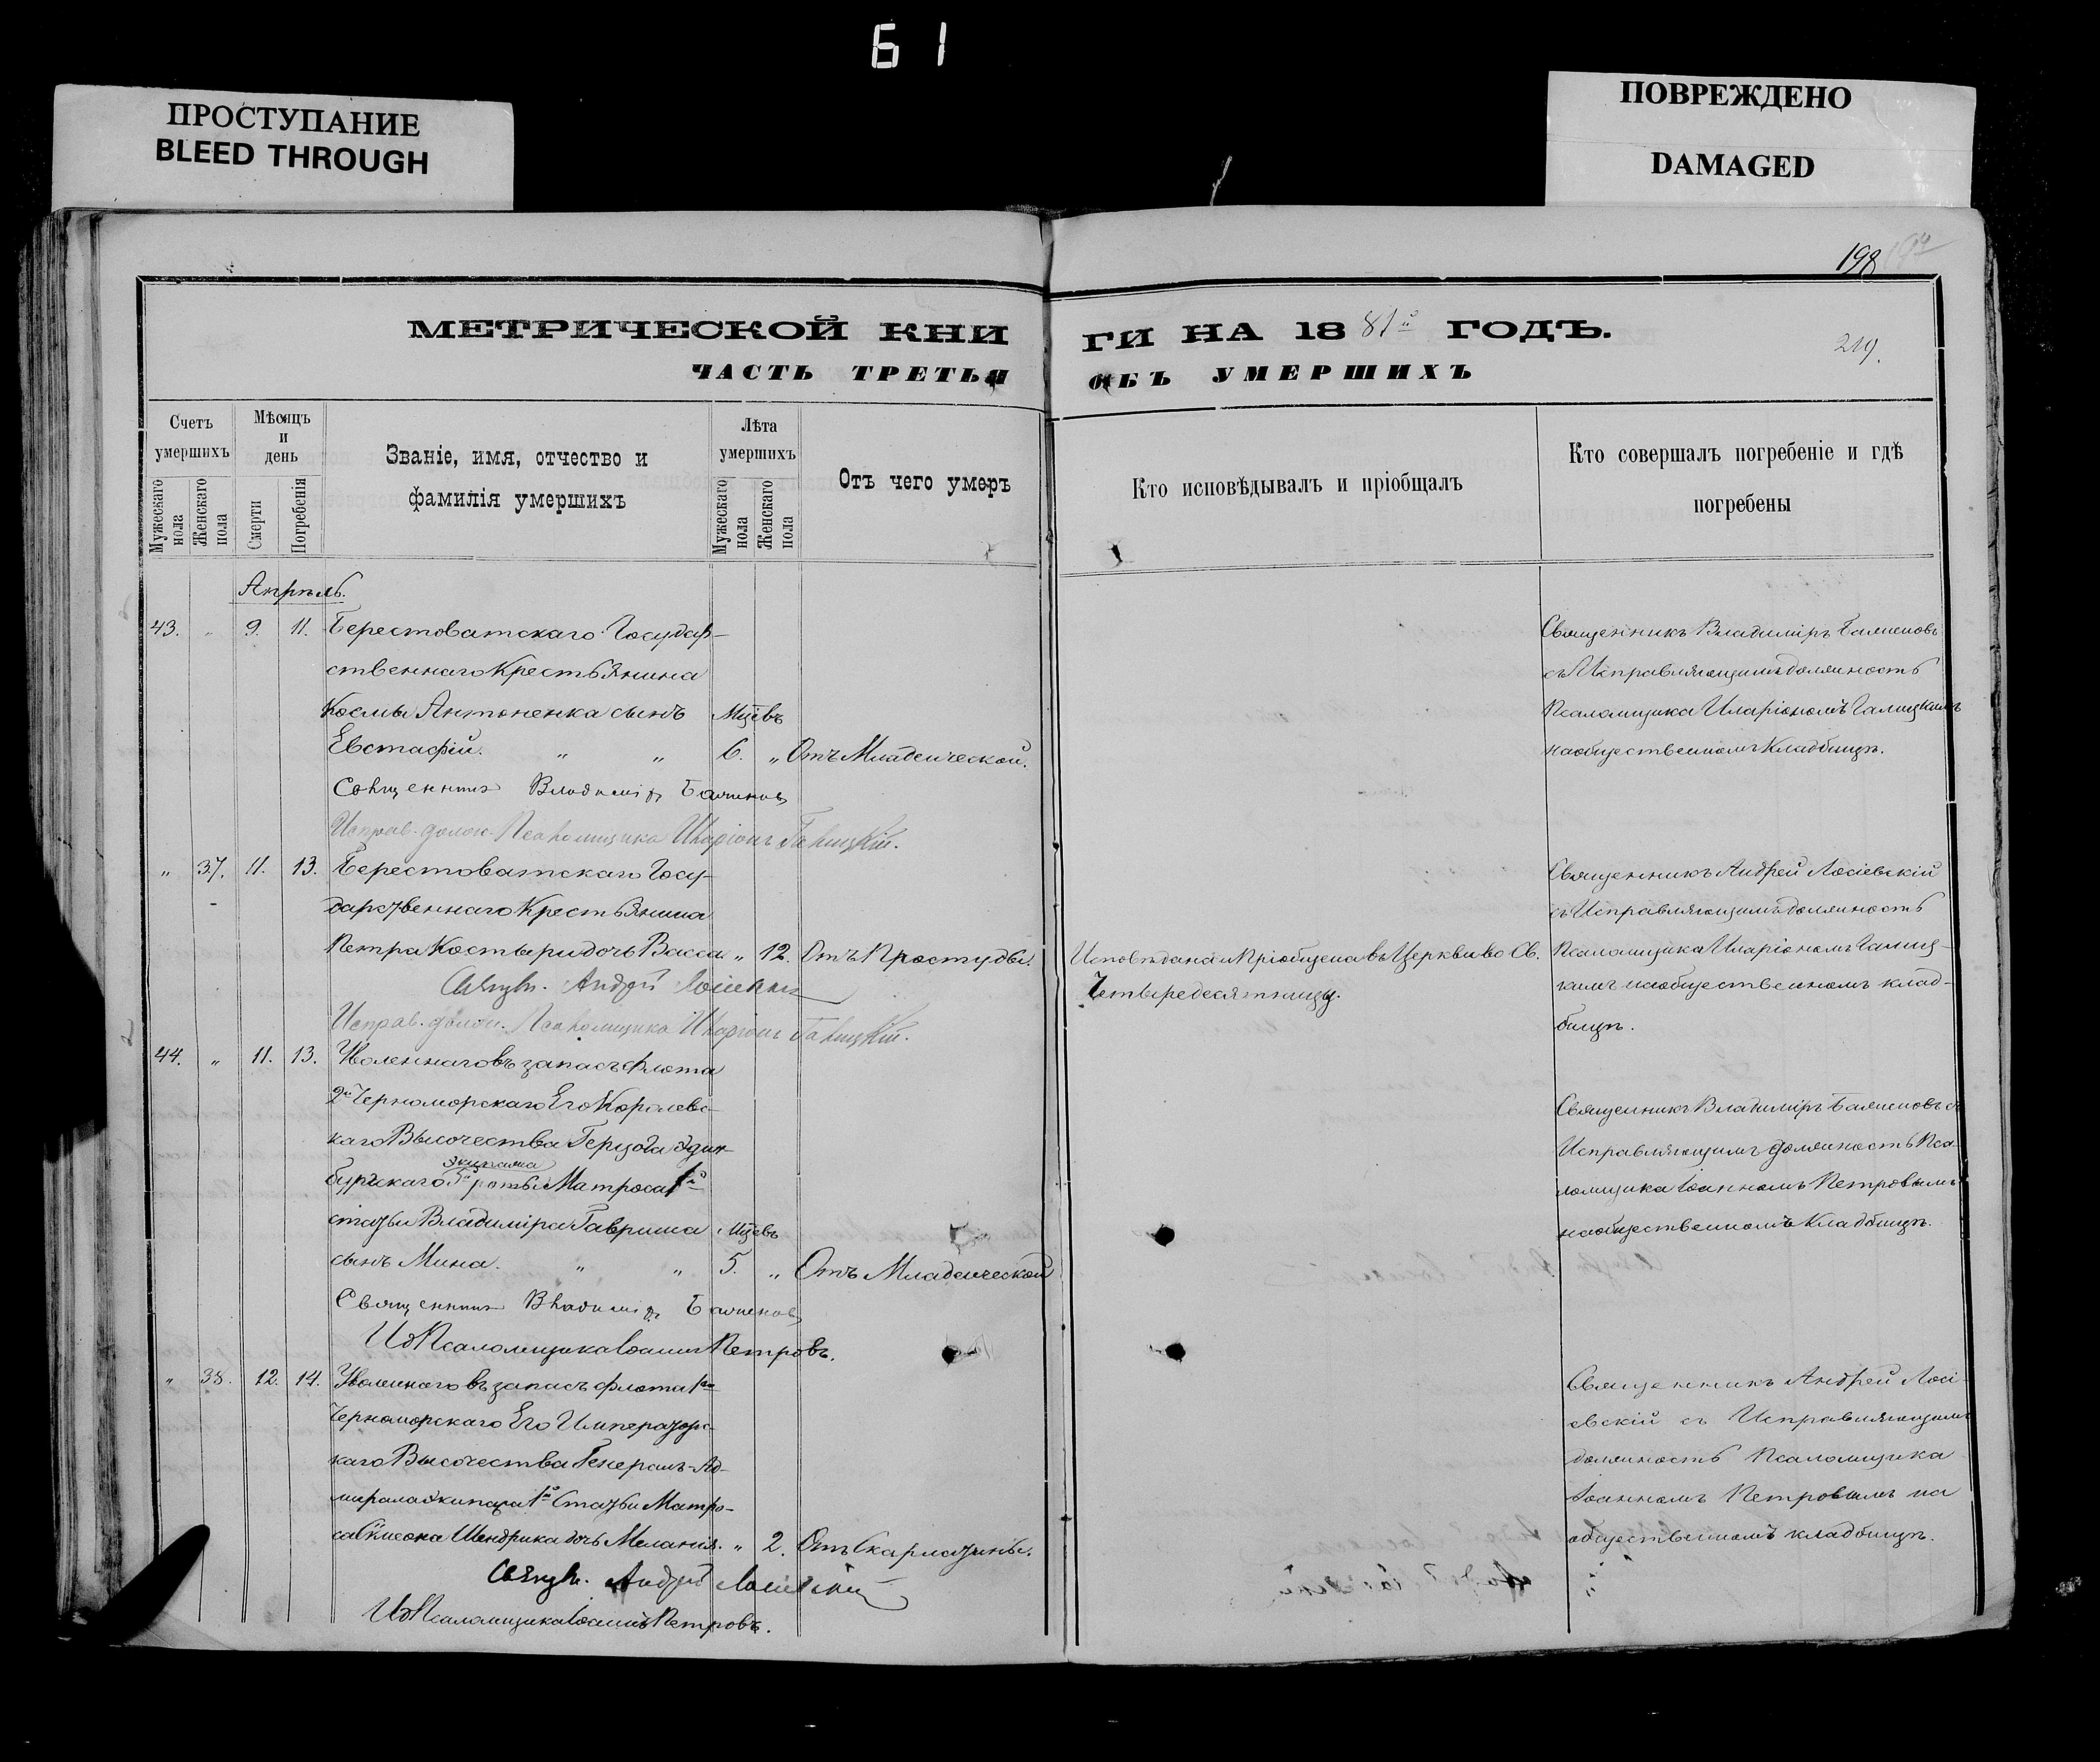 61
ПРОСТУПАНИЕ
BLEED THROUGH
ПОВРЕЖДЕНО
DAMAGED
198
МЕТРИЧЕСКОЙ КНИ
ГИ НА 1881й ГОДЪ.
219.
ЧАСТЬ ТРЕТЬЯ
ОБЪ УМЕРШИХЪ
Счетъ умершихъ
Мѣсяцъ и день
Званіе, имя, отчество и фамилія умершихъ
Лѣта умершихъ
Отъ чего умеръ
Кто исповѣдывалъ и пріобщалъ
Кто совершалъ погребеніе и гдѣ погребены
Мужескаго пола
Женскаго пола
Смерти
Погребенія
Мужескаго пола
Женскаго пола
Апрѣль.
43. " 9. 11. Берестоватскаго Государ-
ственнаго Крестьянина
Космы Антоненка сынъ Мцевъ
Евстафій. " " 6. " Отъ Младенческой.
Священникъ Владиміръ
Исправ. долж. Псаломщика Иларіонъ Галицкій.
Священникъ Владиміръ
съ Исправляющимъ должность
Псаломщика Иларіономъ Галицкимъ
на общественномъ кладбищѣ.
" 37. 11. 13. Берестоватскаго Госу-
дарственнаго Крестьянина
Петра Костыри дочь Васса. " 12. Отъ Простуды.
Священ. Андрей Лосіевскій
Исправ. долж. Псаломщика Иларіонъ Галицкій.
Исповѣдана и Пріобщена въ Церкви во Св.
Четыредесятницу.
Священникъ Андрей Лосіевскій
съ Исправляющимъ должность
Псаломщика Иларіономъ Галиц-
кимъ на общественномъ клад-
бищѣ.
44. " 11. 13. Уволеннаго въ запасъ флота
2го Черноморскаго Его Королевс-
каго Высочества Герцога Эдин-
экипажа
бургскаго 5й роты Матроса 1й
статьи Владиміра Гавриша Мцевъ
сынъ Мина. " " 5. " Отъ Младенческой
Священникъ Владиміръ
ИД Псаломщика Іоаннъ Петровъ.
Священникъ Владиміръ съ
Исправляющимъ должность Пса-
ломщика Іоанномъ Петровымъ
на общественномъ кладбищѣ.
" 38. 12. 14. Уволеннаго въ запасъ флота 1го
Черноморскаго Его Императорс-
каго Высочества Генералъ-Ад-
мирала экипажа 1й Статьи Матро-
са Сѵмеона Шендрика дочь Меланія. " 2. Отъ Скарлатины.
Священ. Андрей Лосіевскій
ИД Псаломщика Іоаннъ Петровъ.
Священникъ Андрей Лосі-
евскій съ Исправляющимъ
должность Псаломщика
Іоанномъ Петровымъ на
общественномъ кладбищѣ.